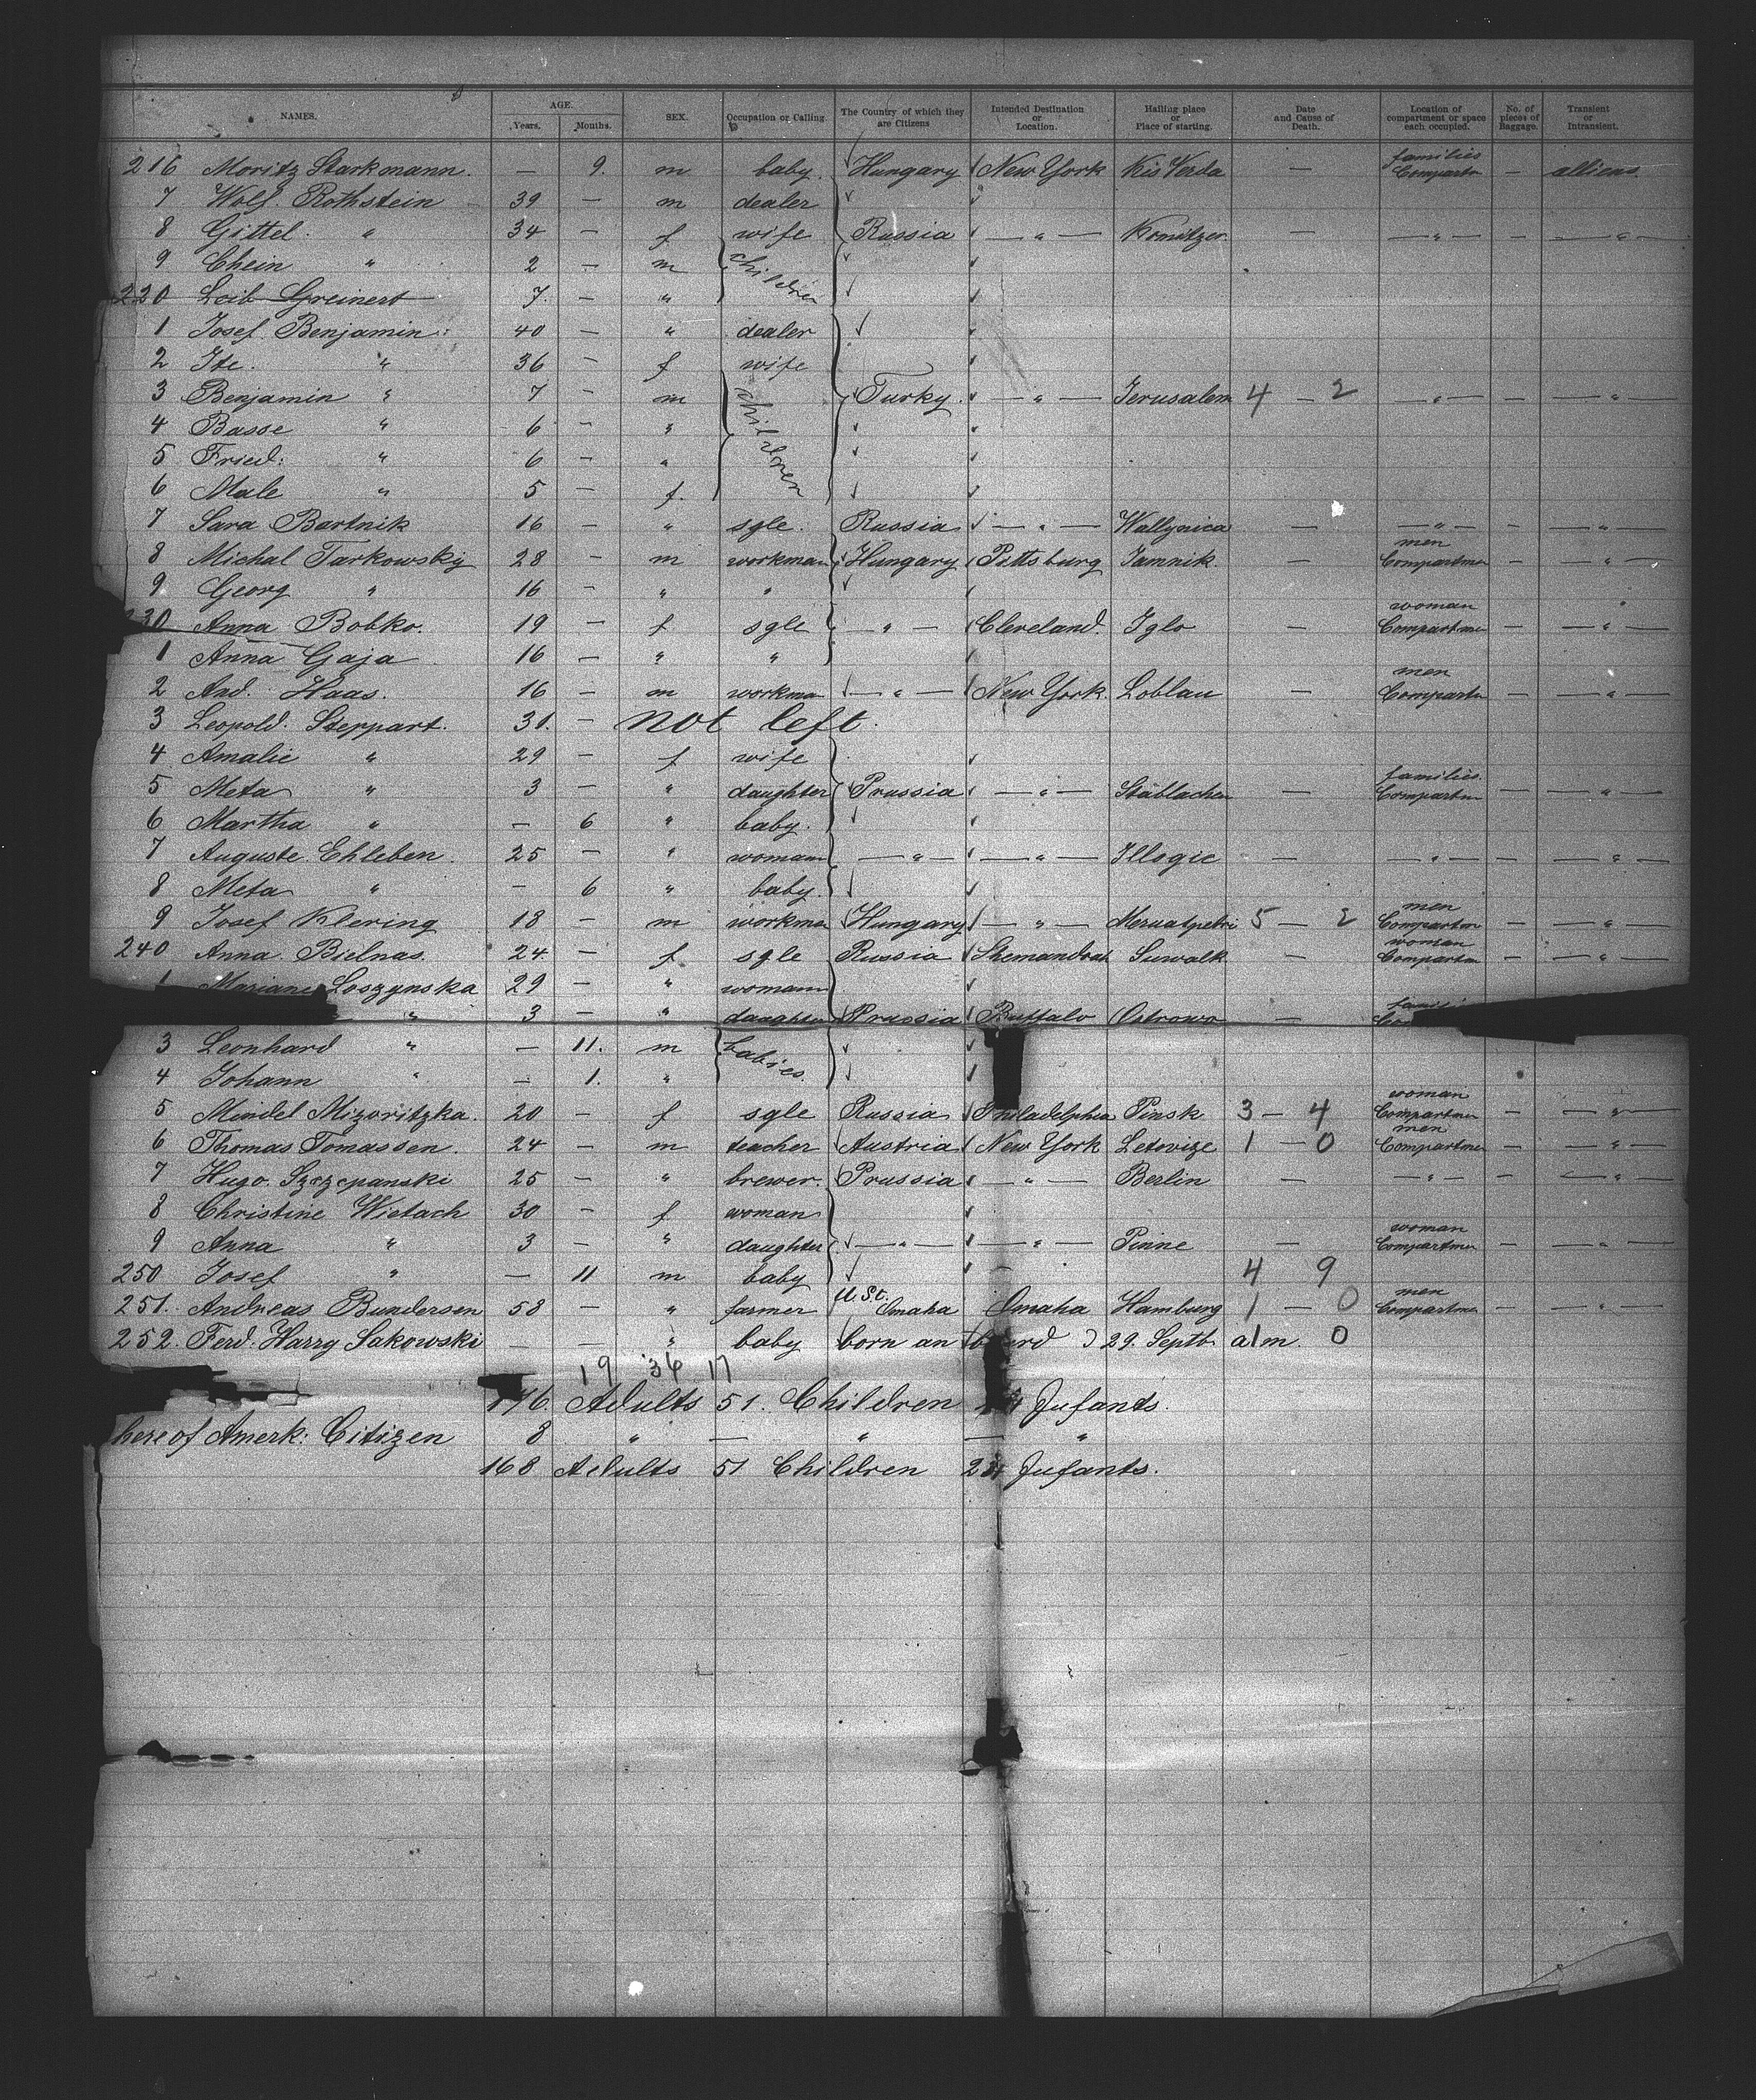 NAMES. AGE. Years. Months. SEX. Occupation or Calling The Country of which they are Citizens Intended Destination or Location. Hailing place or Place of starting. Date and Cause of Death. Location of compartment or space each occupied. No. of pieces of Baggage. Transient or Intransient.
216 Moritz Starkmann. — 9. m baby. Hungary New York Kis Verda — families Compartm — alliens.
7 Wolf Rothstein 39 — m dealer
8 Gittel " 34 — f wife Russia — " — Komitzer. — — " — — — " —
9 Chein " 2 — m children
220 Leib Greinert 7. — "
1 Josef Benjamin 40 — " dealer
2 Ite. " 36 — f wife
3 Benjamin " 7 — m children Turky. — " — Jerusalem 4 — 2 — " — — — " —
4 Basse " 6 — "
5 Fried: " 6 — "
6 Male " 5 — f.
7 Sara Bartnik 16 — " sgle. Russia — " — Wallynica — — " — — — " —
8 Michal Tarkowsky 28 — m workman Hungary Pittsburg Jamnik. — men Compartmen — — " —
9 Georg " 16 — " "
230 Anna Bobko. 19 — f sgle — " — Cleveland. Iglo — woman Compartmen — — " —
1 Anna Gaja 16 — " "
2 And. Haas. 16 — m workman — " — New York Loblau — men Compartm — — " —
3 Leopold. Steppart. 31. — not left.
4 Amalie " 29 — f wife
5 Meta " 3 — " daughter Prussia — " — Stäblachen — families. Compartm — — " —
6 Martha " — 6 " baby.
7 Auguste Ehleben. 25 — " woman — " — — " — Illogic — — " — — — " —
8 Meta " — 6 " baby.
9 Josef Klering 18 — m workman Hungary — " — 5 — 2 men Compartm — — " —
240 Anna. Bielnas. 24 — f sgle Russia Suwalk — woman Compartm — — " —
1 Mariane Loszynska 29 — " womann
" 3 — " daughter Prussia Buffalo Ostrowo —
3 Leonhard " — 11. m babies
4 Johann " — 1. "
5 Mindel Mizoritzka. 20 — f sgle Russia Philadelphia Pinsk 3 — 4 woman Compartmen — — " —
6 Thomas Tomassen. 24 — m teacher Austria New York Letovize 1 — 0 men Compartmen — — " —
7 Hugo. Szczepanski 25 — " brewer. Prussia — " — Berlin — — " — — — " —
8 Christine Wietach 30 — f woman
9 Anna " 3 — " daughter — " — — " — Pinne — woman Compartmen — — " —
250 Josef " — 11 m baby 4 9
251. Andreas Bundersen 58 — " farmer U St. Omaha Omaha Hamburg 1 — 0 men Compartmen — — " —
252. Ferd. Harry Sakowski — — " baby born an board 29. Septb. a/m. 0
19 36 17
176. Adults 51. Children Jufants.
here of Amerk: Citizen 8 " — " — "
168 Adults 51 Children Jufants.